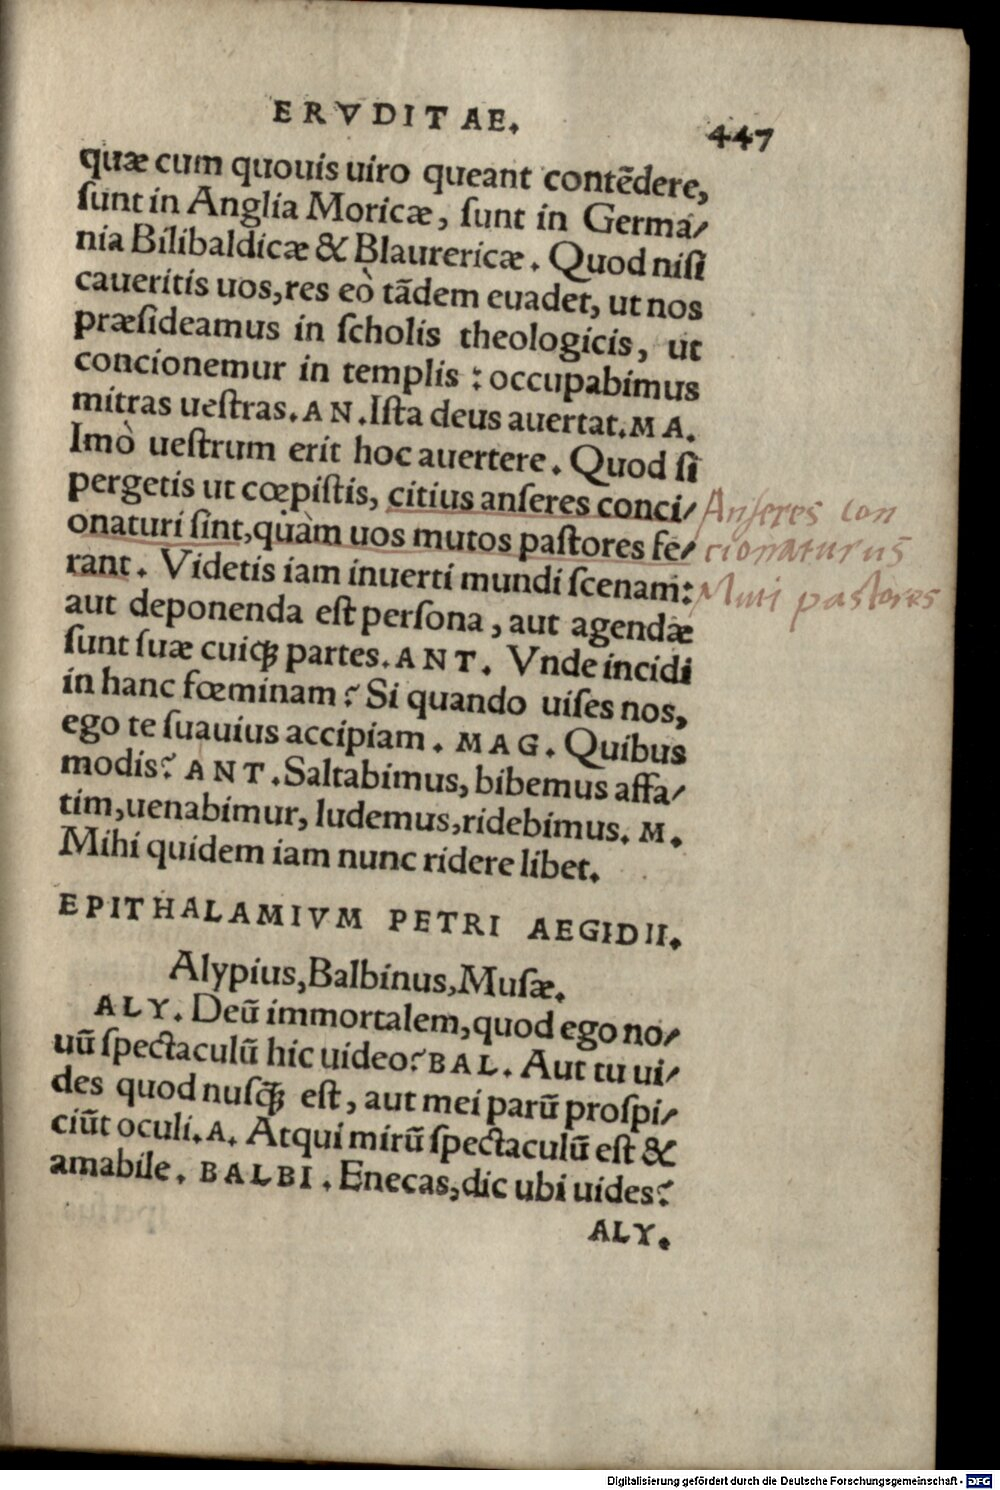 ERVDITAE.
447
quæ cum quouis uiro queant contēdere,
ſunt in Anglia Moricæ, ſunt in Germa/
nia Bilibaldicæ & Blaurericæ. Quod niſi
caueritis uos, res eò tādem euadet, ut nos
præſideamus in ſcholis theologicis, ut
concionemur in templis : occupabimus
mitras ueſtras. AN. Iſta deus auertat. MA.
Imò ueſtrum erit hoc auertere. Quod ſi
pergetis ut cœpiſtis, citius anſeres conci/
onaturi ſint, quàm uos mutos paſtores fe/
rant. Videtis iam inuerti mundi ſcenam:
aut deponenda eſt perſona, aut agendæ
ſunt ſuæ cuiqꝫ partes. ANT. Vnde incidi
in hanc fœminam? Si quando uiſes nos,
ego te ſuauius accipiam. MAG. Quibus
modis? ANT. Saltabimus, bibemus affa/
tim, uenabimur, ludemus, ridebimus. M.
Mihi quidem iam nunc ridere libet.
Anſeres con
cionaturus
Muti pastores
EPITHALAMIVM PETRI AEGIDII.
Alypius, Balbinus, Muſæ.
ALY. Deū immortalem, quod ego no/
uū ſpectaculū hic uideo? BAL. Aut tu ui/
des quod nuſq̃ꝫ eſt, aut mei parū proſpi/
ciūt oculi. A. Atqui mirū ſpectaculū eſt &
amabile. BALBI. Enecas, dic ubi uides?
ALY.
Digitalisierung gefördert durch die Deutsche Forschungsgemeinschaft - DFG